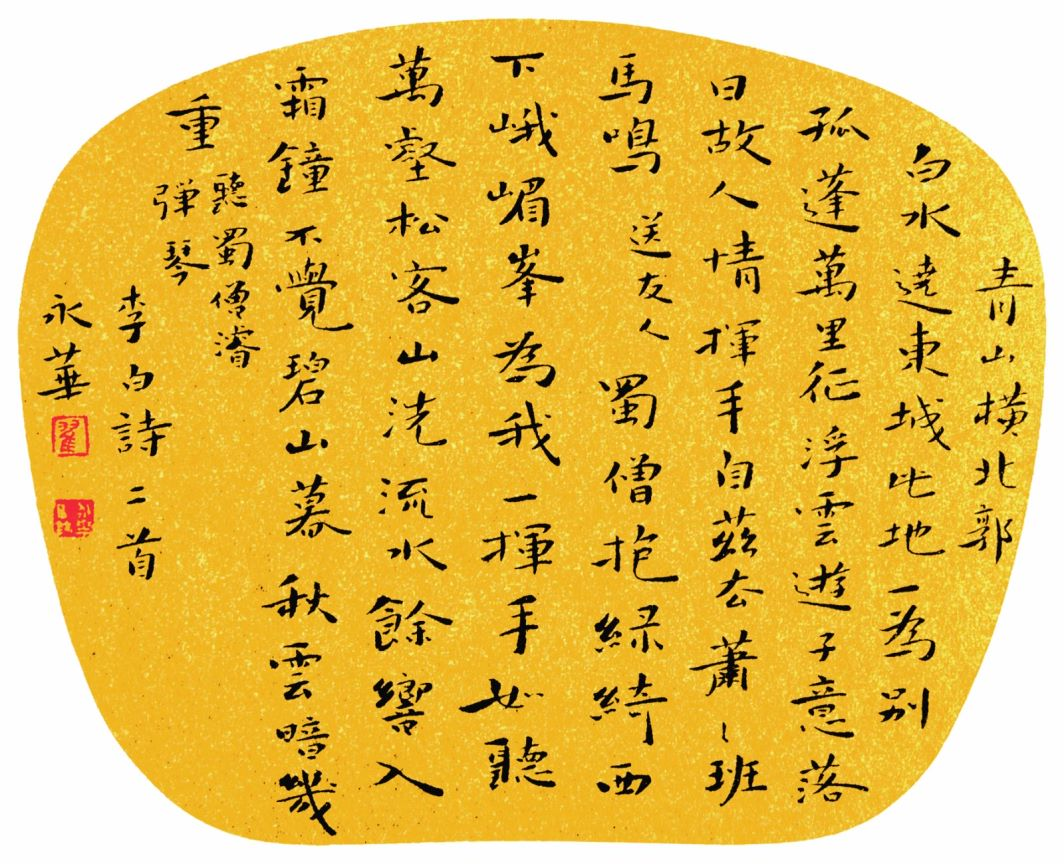 青山橫北郭
白水遶東城此地一為別
孤蓬萬里征浮雲遊子意落
日故人情揮手自茲去蕭〻班
馬鳴 送友人 蜀僧抱綠綺西
下峨嵋峯為我一揮手如聽
萬壑松客山洗流水餘響入
霜鐘不覺碧山暮秋雲暗幾
重 聽蜀僧濬
弹琴
李白詩二首
永華
翟